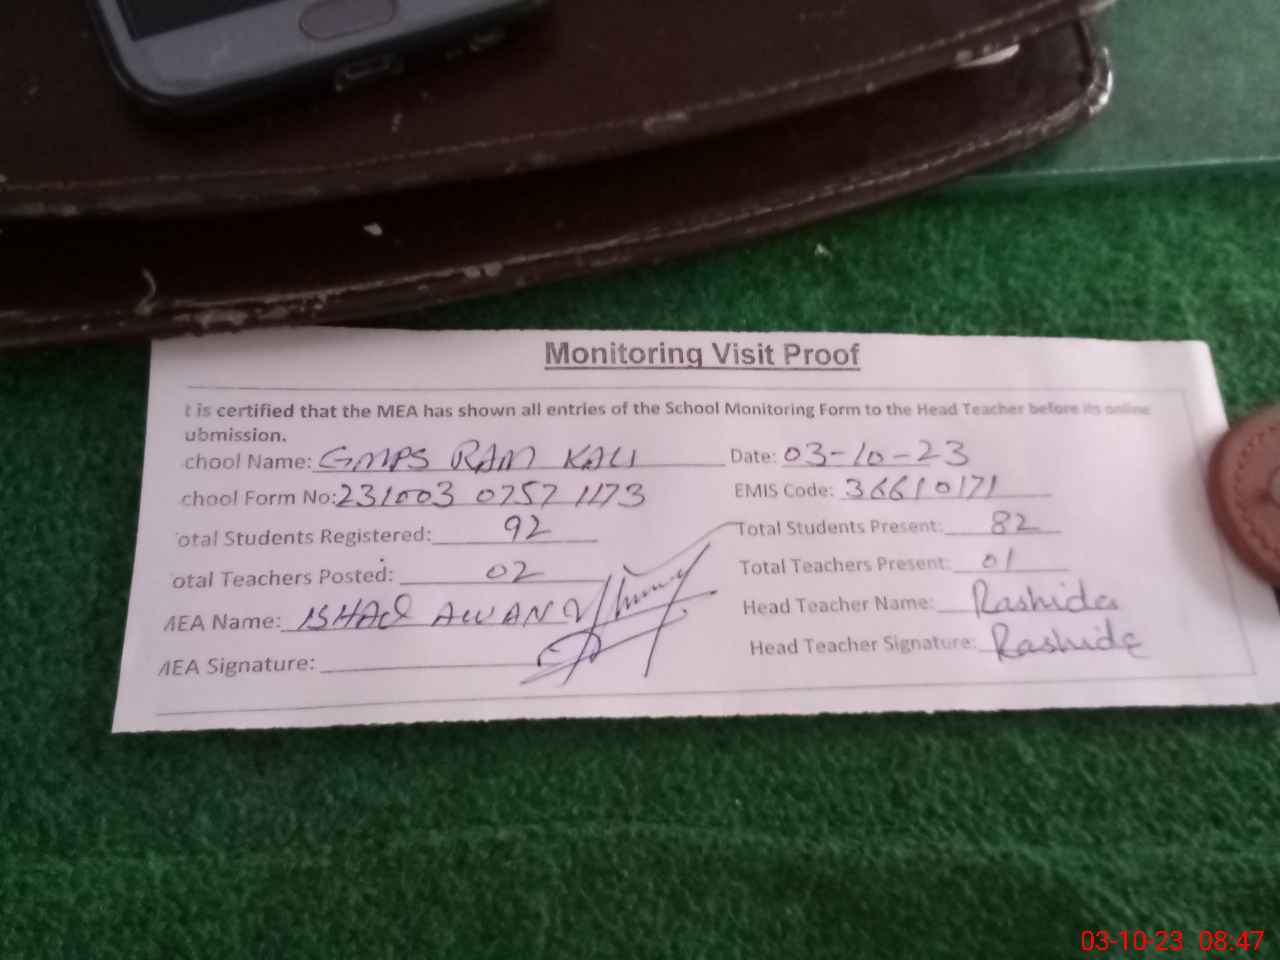 Monitoring Visit Proof
t is certified that the MEA has shown all entries of the School Monitoring Form to the Head Teacher before its online
ubmission.
chool Name: GMPS RAM KALI Date: 03-10-23
chool Form No: 231003 0757 1173 EMIS Code: 36610171
otal Students Registered: 92 Total Students Present: 82
otal Teachers Posted: 02 Total Teachers Present: 01
MEA Name: ISHAQ AWAN Head Teacher Name: Rashida
MEA Signature: Head Teacher Signature: Rashida
03-10-23 08:47